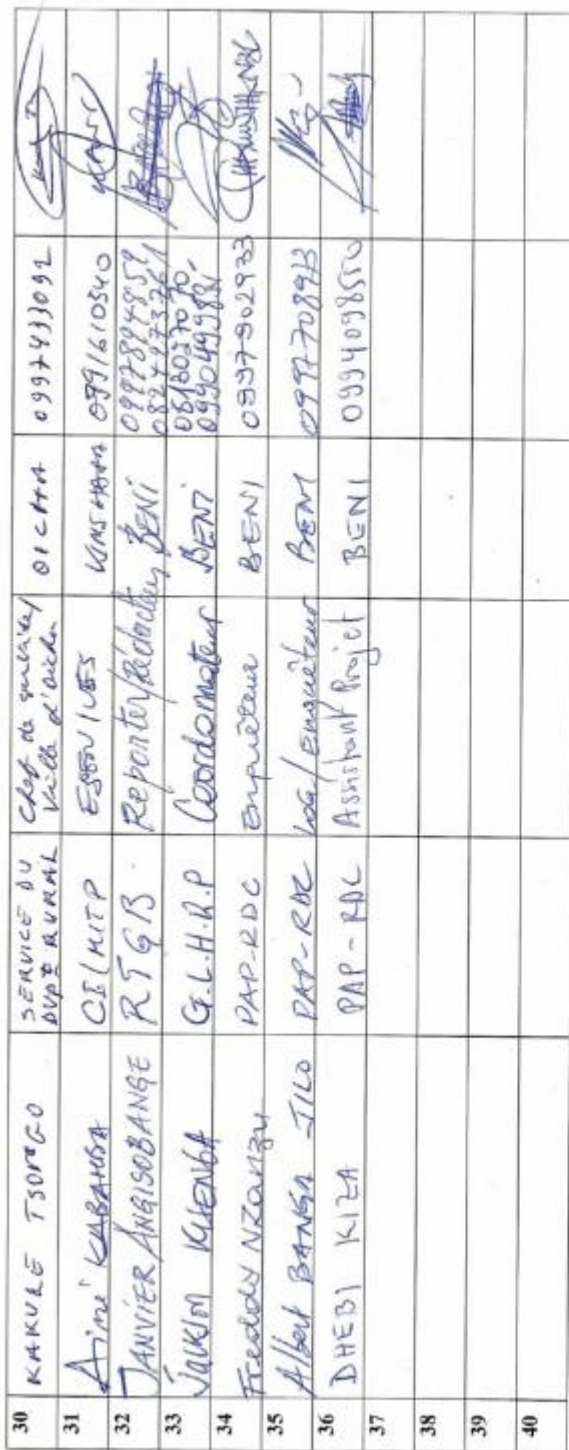 30 KAKULE TSONGO SERVICE DU DVPT RURAL Chef de service/ Ville d'oicha OICHA 0997433092
31 Aimé KABAMBA CI/MITP KINSHASA 0991610540
32 JANVIER ANGISOBANGE RTGB Reporter/Rédacteur BENI 0997894859
33 JOAKIM G.L.H.R.P Coordonnateur BENI
34 Freddy NZANZU PAP-RDC Enquêteur BENI 0997902933
35 Albert BANGA JILO PAP-RDC Enquêteur BENI 0997708923
36 DHEBI KIZA PAP-RDC Assistant Projet BENI 0994098550
37
38
39
40